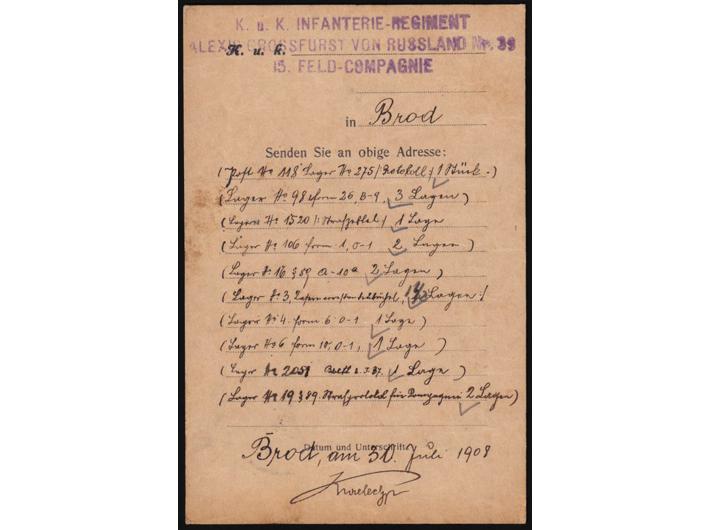 K. u. K. INFANTERIE-REGIMENT
ALEXIS GROSSFÜRST VON RUSSLAND Nr. 39
K. u. k.
15. FELD-COMPAGNIE
in Brod
Senden Sie an obige Adresse:
(Post No 118 Lager No 275 / Protokoll / 1 Stück.)
(Lager No 98 Form 26, B-9, 3 Lagen)
(Lager No 1520 /: Strafzettel / 1 Lage
(Lager No 106 Form 1, 0-1 2 Lagen)
(Lager No 16 § 89 a-10a 2 Lagen)
(Lager No 3, Lagen:/
(Lager No 4 Form 6 0-1 1 Lage)
(Lager No 6 Form 10, 0-1, 1 Lage)
(Lager No 2051 1 Lage)
(Lager No 19 § 89. für Compagnie 2 Lagen)
Datum und Unterschrift:
Brod, am 30. Juli 1908